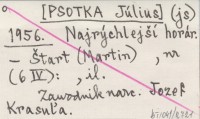 [PSOTKA Július] (js)
1956. Najrýchlejší horár.
- Štart (Martin) , nr
(6 IV): , il.
Zawodnik narc. Jozef
Krasuľa.